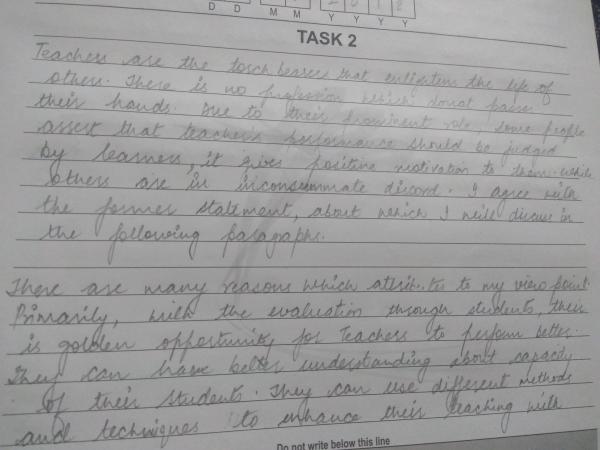 D D M M Y Y Y Y
TASK 2
Teachers are the torch bearers that enlighten the life of
others. There is no profession which donot pass
their hands. Due to their prominent role, some people
assert that teacher's performance should be judged
by learners, it gives positive motivation to them. while
others are in inconsummate discord. I agree with
the former statement, about which I will discuss in
the following paragraphs.
There are many reasons which attributes to my view point.
Primarily, with the evaluation through students, their
is golden opportunity for Teachers to perform better.
They can have better understanding about capacity
of their students. They can use different methods
and techniques to enhance their teaching with
Do not write below this line